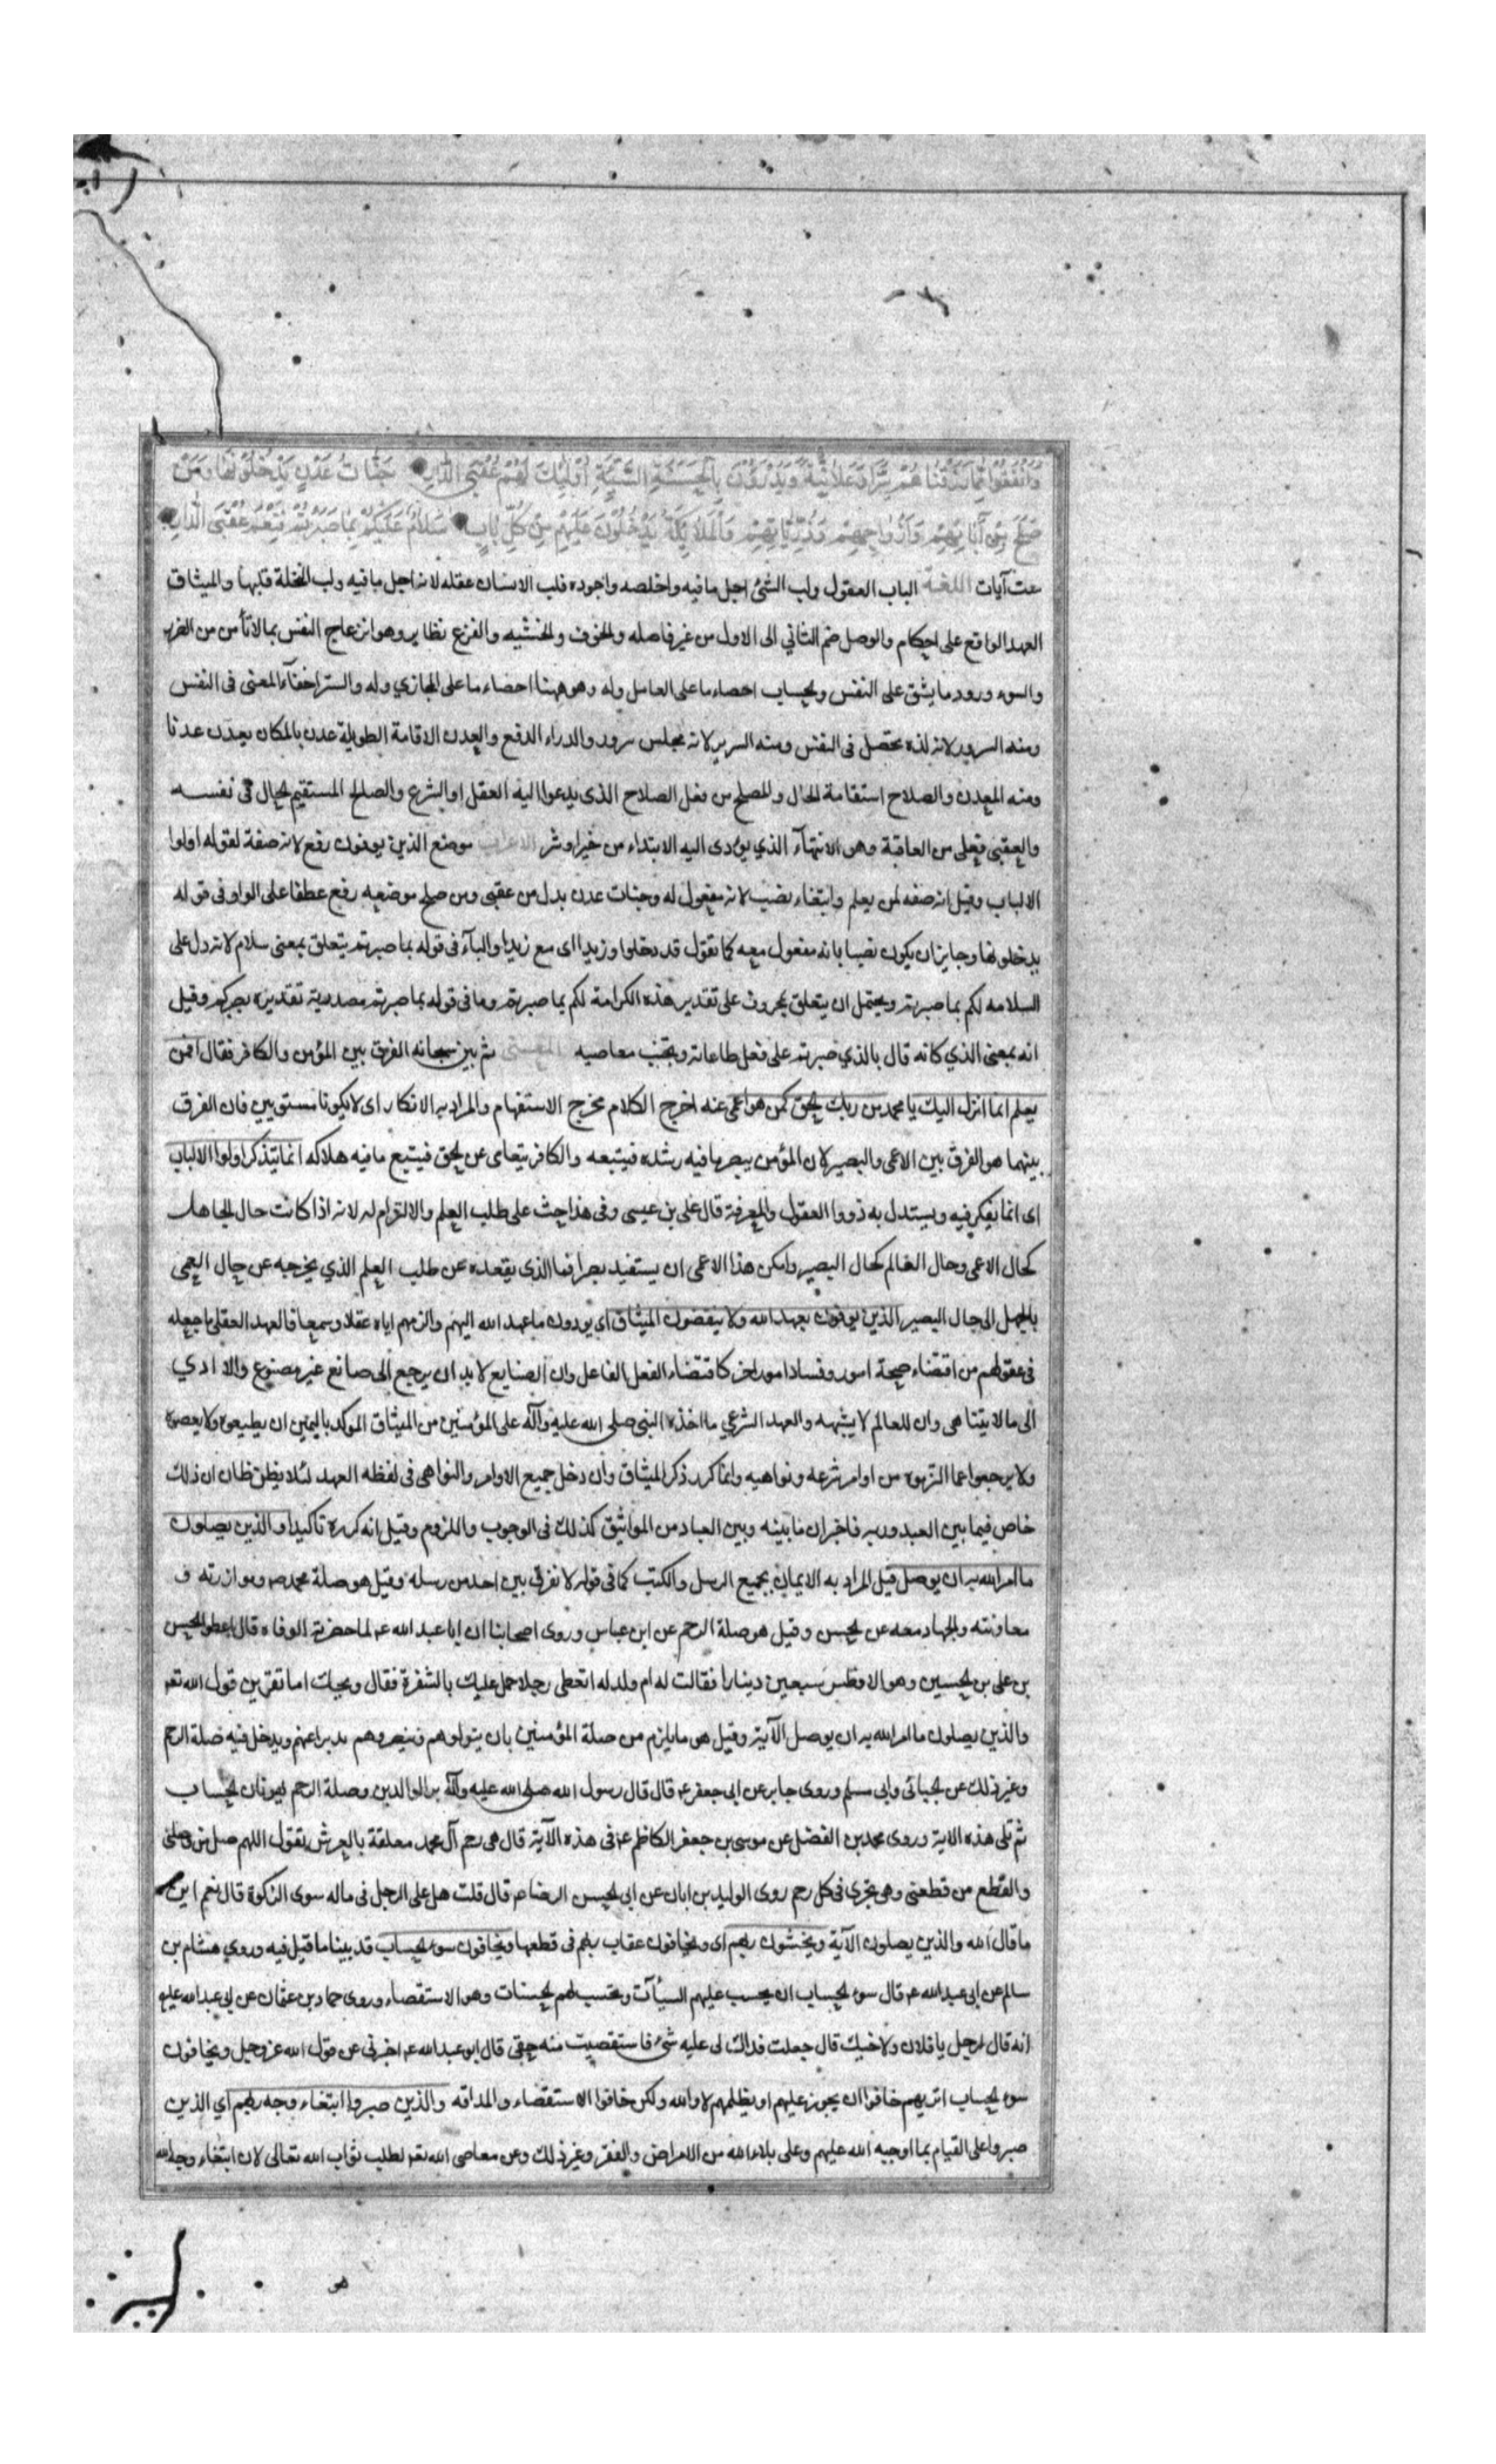 وَأَنْفَقُوا مِمَّا رَزَقْنَاهُمْ سِرًّا وَعَلَانِيَةً وَيَدْرَؤُنَ بِالْحَسَنَةِ السَّيِّئَةِ أُولَئِكَ لَهُمْ عُقْبَى الدَّارِ جَنَّاتُ عَدْنٍ يَدْخُلُونَهَا وَمَنْ
صَلَحَ مِنْ آبَائِهِمْ وَأَزْوَاجِهِمْ وَذُرِّيَّاتِهِمْ وَالْمَلَائِكَةُ يَدْخُلُونَ عَلَيْهِمْ مِنْ كُلِّ بَابٍ سَلَامٌ عَلَيْكُمْ بِمَا صَبَرْتُمْ فَنِعْمَ عُقْبَى الدَّارِ
ست آيات اللغة الباب العقول ولب الشئ اجل ما فيه واخلصه واجوده فلب الانسان عقله لانه اجل ما فيه ولب النخلة قلبها والميثاق
العهد الواقع على احكام والوصل ضم الثاني الى الاول من غير فاصله والخوف والخشيه والفزع نظاير وهو انزعاج النفس بما لا تأمن من الضرر
والسوء ورود ما يشق على النفس والحساب احصاء ما على العامل وله وهو ههنا احصاء ما على المجازي وله والستر اخفآء المعنى فى النفس
ومنه السرور لانه لذه تحصل فى النفس ومنه السرير لانه مجلس سرور والدراء الدفع والعدن الاقامة الطويلة عدن بالمكان يعدن عدنا
ومنه المعدن والصلاح استقامة الحال والمصلح من فعل الصلاح الذى يدعوا اليه العقل او الشرع والصالح المستقيم الحال فى نفسه
والعقبى فعلى من العاقبة وهو الانتهآء الذي يؤدى اليه الابتداء من خير او شر الاعراب موضع الذين يوفون رفع لانه صفة لقوله اولوا
الالباب وقيل انه صفه لمن يعلم وابتغاء نصب لانه مفعول له وجنات عدن بدل من عقبى ومن صلح موضعه رفع عطفا على الواو فى قوله
يدخلونها وجايز ان يكون نصبا بانه مفعول معه كما تقول قد دخلوا وزيدا اى مع زيد والبآء فى قوله بما صبرتم يتعلق بمعنى سلام لانه دل على
السلامه لكم بما صبرتم ويحتمل ان يتعلق بمحذوف على تقدير هذه الكرامة لكم بما صبرتم وما فى قوله بما صبرتم مصدرية تقديره بصبركم وقيل
انه بمعنى الذي كانه قال بالذي صبرتم على فعل طاعاته وتجنب معاصيه المعنى ثم بين سبحانه الفرق بين المؤمن والكافر فقال افمن
يعلم انما انزل اليك يا محمد من ربك الحق كمن هو اعمى عنه اخرج الكلام مخرج الاستفهام والمراد به الانكار اى لا يكونا مستويين فان الفرق
بينهما هو الفرق بين الاعمى والبصير لان المؤمن يبصر ما فيه رشده فيتبعه والكافر يتعامى عن الحق فيتبع ما فيه هلاكه انما يتذكر اولوا الالباب
اى انما يفكر فيه ويستدل به ذووا العقول والمعرفة قال على بن عيسى وفى هذا حث على طلب العلم والالتزام له لانه اذا كانت حال الجاهل
كحال الاعمى وحال العالم كحال البصير وامكن هذا الاعمى ان يستفيد بصرا فما الذى يقعده عن طلب العلم الذي يخرجه عن حال العمى
بالجهل الى حال البصير الذين يوفون بعهد الله ولا ينقضون الميثاق اي يودون ما عهد الله اليهم والزمهم اياه عقلا وسمعا فالعهد العقلى ما جعله
فى عقولهم من اقتضاء صحة امور وفساد امور اخر كاقتضاء الفعل الفاعل وان الصنايع لابد ان يرجع الى صانع غير مصنوع والا ادي
الى ما لا يتناهى وان للعالم لا يشبهه والعهد الشرعي ما اخذه النبى صلى الله عليه وآله على المؤمنين من الميثاق الموكد باليمين ان يطيعوه ولا يعصوه
ولا يرجعوا عما التزموه من اوامر شرعه ونواهيه وانما كرر ذكر الميثاق وان دخل جميع الاوامر والنواهى فى لفظه العهد لئلا يظن ظان ان ذلك
خاص فيما بين العبد وربه فاخبر ان ما بينه وبين العباد من المواثيق كذلك فى الوجوب واللزوم وقيل انه كرره تاكيدا والذين يصلون
ما امر الله به ان يوصل قيل المراد به الايمان بجميع الرسل والكتب كما فى قوله لا نفرق بين احد من رسله وقيل هو صلة محمد ص وموازرته و
معاونته والجهاد معه عن الحسن وقيل هو صلة الرحم عن ابن عباس وروى اصحابنا ان ابا عبد الله ع لما حضرته الوفاه قال اعطوا الحسن
بن على بن الحسين وهو الافطس سبعين دينارا فقالت له ام ولد له اتعطى رجلا حمل عليك بالشفرة فقال ويحك اما تقرين قول الله تع
والذين يصلون ما امر الله به ان يوصل الآية وقيل هو ما يلزم من صلة المؤمنين بان يتولوهم وينصروهم ويدخل فيه صلة الرحم
وغير ذلك عن الجبائى وابى مسلم وروى جابر عن ابى جعفر ع قال قال رسول الله صلى الله عليه وآله بر الوالدين وصلة الرحم يهونان الحساب
ثم تلى هذه الاية وروى محمد بن الفضل عن موسى بن جعفر الكاظم ع فى هذه الآية قال هى رحم آل محمد معلقة بالعرش يقول اللهم صل من وصلنى
والقطع من قطعنى وهى تجرى فى كل رحم روى الوليد بن ابان عن ابى الحسن الرضا ع قال قلت هل على الرجل فى ماله سوى الزكوة قال نعم اين
ما قال الله والذين يصلون الآية ويخشون ربهم اى ويخافون عقاب ربهم فى قطعها ويخافون سوء الحساب قد بينا ما قيل فيه وروي هشام بن
سالم عن ابى عبد الله ع قال سوء الحساب ان يحسب عليهم السيئآت ويحتسب لهم الحسنات وهو الاستقصاء وروى حماد بن عثمان عن ابى عبد الله عليه
انه قال لرجل يا فلان ولاخيك قال جعلت فداك لى عليه شئ فاستقصيت منه حقى قال ابو عبد الله ع اخبرنى عن قول الله عز وجل ويخافون
سوء الحساب اتريهم خافوا ان يجور عليهم او يظلمهم لا والله ولكن خافوا الاستقصاء والمداقه والذين صبروا ابتغاء وجه ربهم اي الذين
صبروا على القيام بما اوجبه الله عليهم وعلى بلاء الله من الامراض والفقر وغير ذلك وعن معاصى الله تع لطلب ثواب الله تعالى لان ابتغاء وجه الله